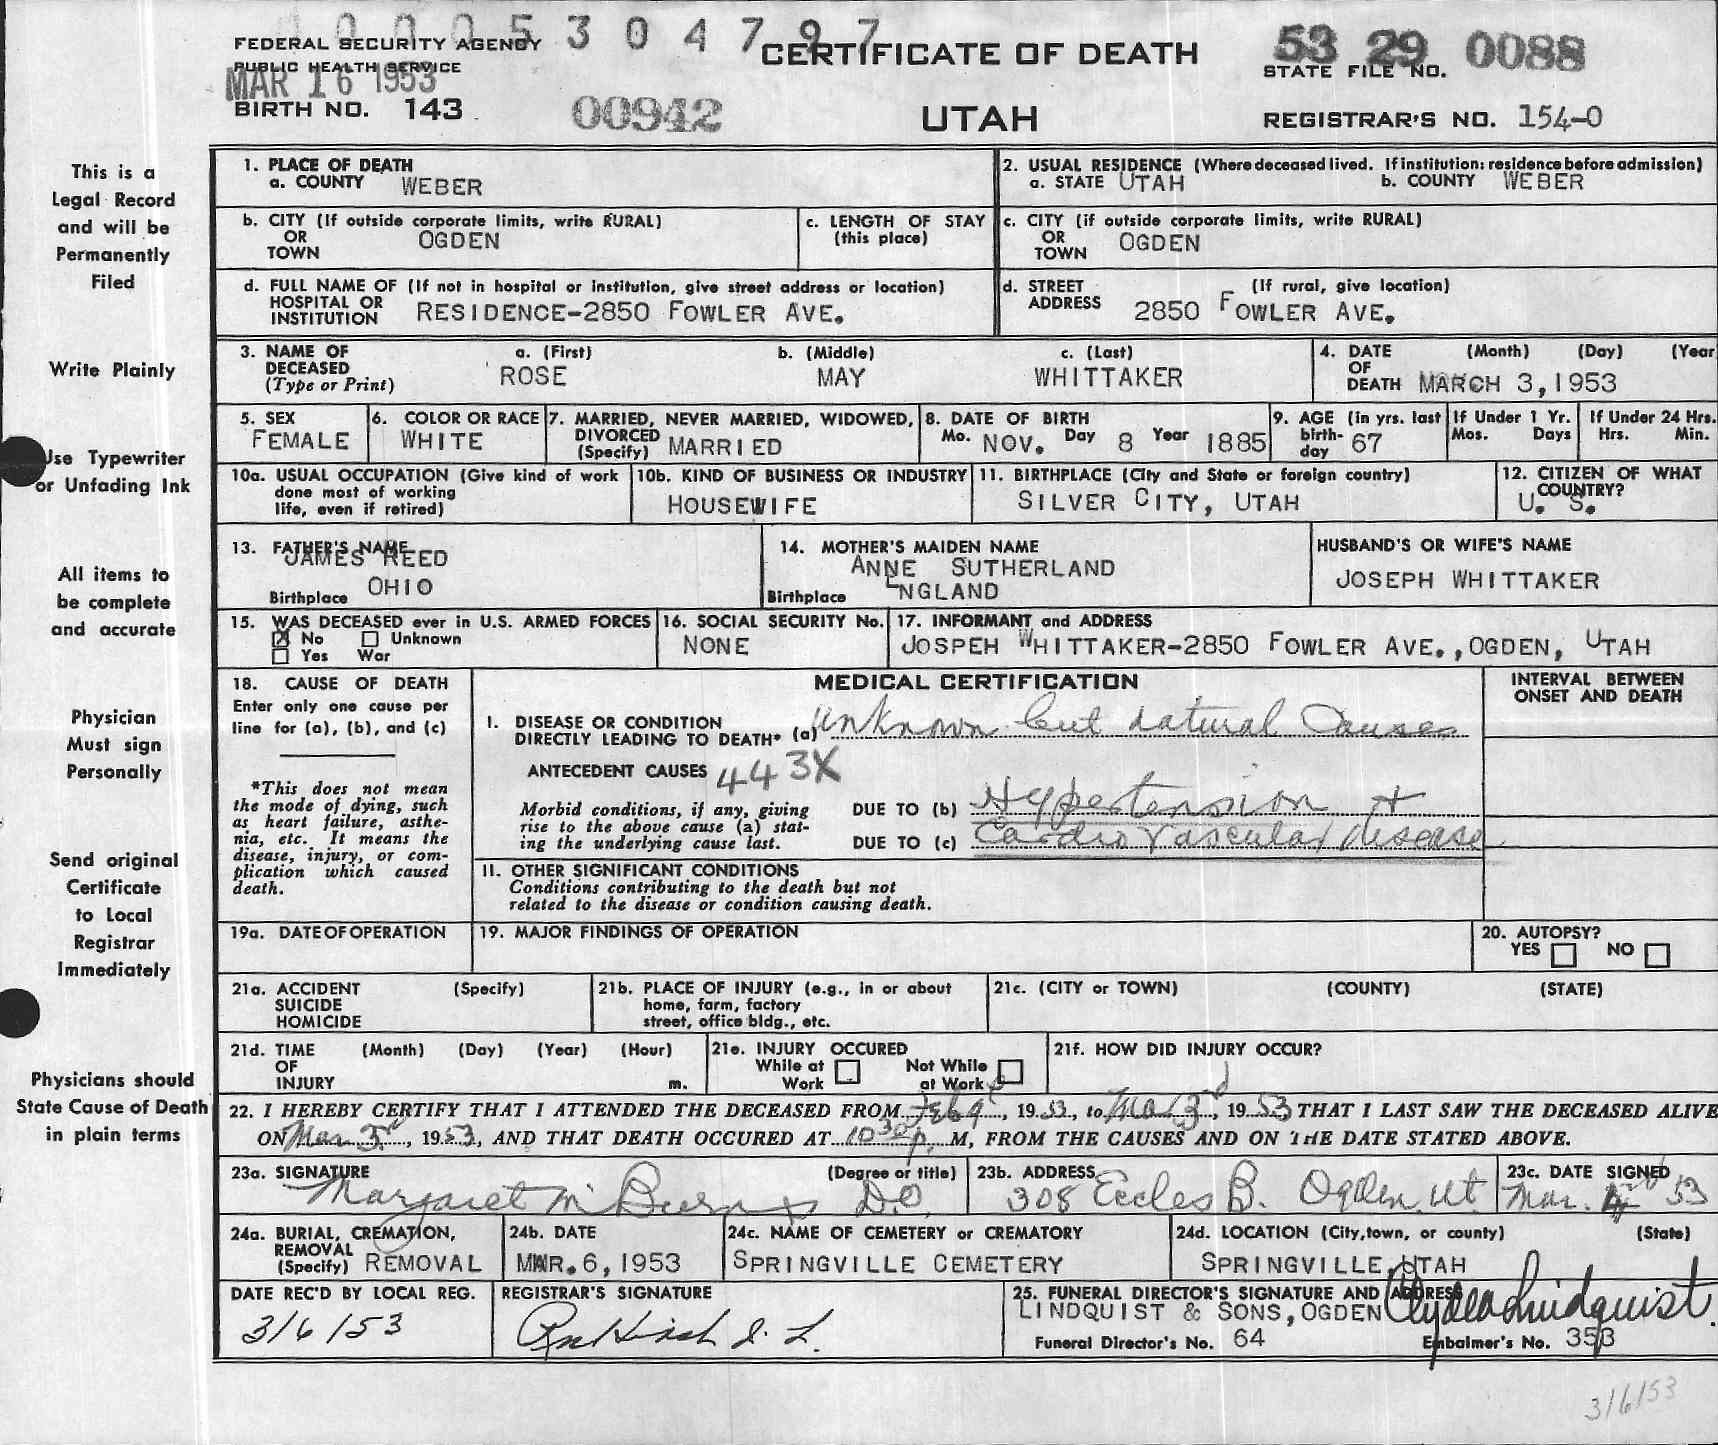 0005304797
FEDERAL SECURITY AGENCY
PUBLIC HEALTH SERVICE
MAR 16 1953
BIRTH NO. 143
00942
CERTIFICATE OF DEATH
UTAH
53 29 0088
STATE FILE NO.
REGISTRAR'S NO. 154-0
This is a
Legal Record
and will be
Permanently
Filed
Write Plainly
Use Typewriter
or Unfading Ink
All items to
be complete
and accurate
Physician
Must sign
Personally
Send original
Certificate
to Local
Registrar
Immediately
Physicians should
State Cause of Death
in plain terms
1. PLACE OF DEATH
a. COUNTY WEBER
2. USUAL RESIDENCE (Where deceased lived. If institution: residence before admission)
a. STATE UTAH b. COUNTY WEBER
b. CITY (If outside corporate limits, write RURAL)
OR
TOWN OGDEN
c. LENGTH OF STAY
(this place)
c. CITY (if outside corporate limits, write RURAL)
OR
TOWN OGDEN
d. FULL NAME OF (If not in hospital or institution, give street address or location)
HOSPITAL OR
INSTITUTION RESIDENCE-2850 FOWLER AVE.
d. STREET (If rural, give location)
ADDRESS 2850 FOWLER AVE.
3. NAME OF
DECEASED
(Type or Print)
a. (First) b. (Middle) c. (Last)
ROSE MAY WHITTAKER
4. DATE (Month) (Day) (Year
OF
DEATH MARCH 3,1953
5. SEX
FEMALE
6. COLOR OR RACE
WHITE
7. MARRIED, NEVER MARRIED, WIDOWED,
DIVORCED
(Specify) MARRIED
8. DATE OF BIRTH
Mo. NOV. Day 8 Year 1885
9. AGE (in yrs. last
birth-
day 67
If Under 1 Yr.
Mos. Days
If Under 24 Hrs.
Hrs. Min.
10a. USUAL OCCUPATION (Give kind of work
done most of working
life, even if retired)
10b. KIND OF BUSINESS OR INDUSTRY
HOUSEWIFE
11. BIRTHPLACE (City and State or foreign country)
SILVER CITY, UTAH
12. CITIZEN OF WHAT
COUNTRY?
U. S.
13. FATHER'S NAME
JAMES REED
Birthplace OHIO
14. MOTHER'S MAIDEN NAME
ANNE SUTHERLAND
Birthplace ENGLAND
HUSBAND'S OR WIFE'S NAME
JOSEPH WHITTAKER
15. WAS DECEASED ever in U.S. ARMED FORCES
X No Unknown
Yes War
16. SOCIAL SECURITY No.
NONE
17. INFORMANT and ADDRESS
JOSPEH WHITTAKER-2850 FOWLER AVE.,OGDEN, UTAH
18. CAUSE OF DEATH
Enter only one cause per
line for (a), (b), and (c)
*This does not mean
the mode of dying, such
as heart failure, asthe-
nia, etc. It means the
disease, injury, or com-
plication which caused
death.
MEDICAL CERTIFICATION
INTERVAL BETWEEN
ONSET AND DEATH
I. DISEASE OR CONDITION
DIRECTLY LEADING TO DEATH* (a) Unknown but natural Causes
ANTECEDENT CAUSES 443X
Morbid conditions, if any, giving
rise to the above cause (a) stat-
ing the underlying cause last.
DUE TO (b) Hypertension +
DUE TO (c) Cardio Vascular disease
11. OTHER SIGNIFICANT CONDITIONS
Conditions contributing to the death but not
related to the disease or condition causing death.
19a. DATE OF OPERATION
19. MAJOR FINDINGS OF OPERATION
20. AUTOPSY?
YES NO
21a. ACCIDENT (Specify)
SUICIDE
HOMICIDE
21b. PLACE OF INJURY (e.g., in or about
home, farm, factory
street, office bldg., etc.
21c. (CITY or TOWN) (COUNTY) (STATE)
21d. TIME (Month) (Day) (Year) (Hour)
OF
INJURY m.
21e. INJURY OCCURED
While at Not While
Work at Work
21f. HOW DID INJURY OCCUR?
22. I HEREBY CERTIFY THAT I ATTENDED THE DECEASED FROM Feb 9, 19 53, to Mar 3rd, 19 53 THAT I LAST SAW THE DECEASED ALIVE
ON Mar 3rd, 19 53, AND THAT DEATH OCCURED AT 10 30 p. M, FROM THE CAUSES AND ON THE DATE STATED ABOVE.
23a. SIGNATURE (Degree or title)
Margaret M Burns D.O.
23b. ADDRESS
308 Eccles B. Ogden Ut
23c. DATE SIGNED
Mar. 53
24a. BURIAL, CREMATION,
REMOVAL
(Specify) REMOVAL
24b. DATE
MAR.6,1953
24c. NAME OF CEMETERY or CREMATORY
SPRINGVILLE CEMETERY
24d. LOCATION (City,town, or county) (State)
SPRINGVILLE,UTAH
DATE REC'D BY LOCAL REG.
3/6/53
REGISTRAR'S SIGNATURE
25. FUNERAL DIRECTOR'S SIGNATURE AND ADDRESS
LINDQUIST & SONS,OGDEN Clyde Lindquist.
Funeral Director's No. 64 Embalmer's No. 353
3/6/53